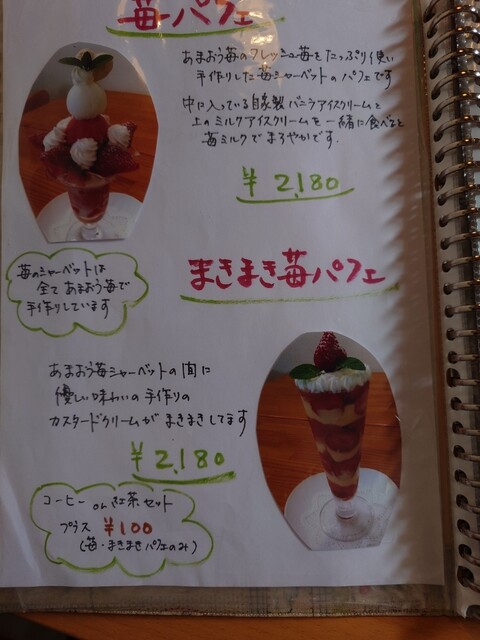 苺パフェ
あまおう苺のフレッシュ苺をたっぷり使い
手作りした苺シャーベットのパフェです
中に入っている自家製バニラアイスクリームと
上のミルクアイスクリームを一緒に食べると
苺ミルクでまろやかです.
¥2,180
苺のシャーベットは
全てあまおう苺で
手作りしています
まきまき苺パフェ
あまおう苺シャーベットの間に
優しい味わいの手作りの
カスタードクリームがまきまきしてます
¥2,180
コーヒー or 紅茶セット
プラス ¥100
(苺・まきまきパフェのみ)